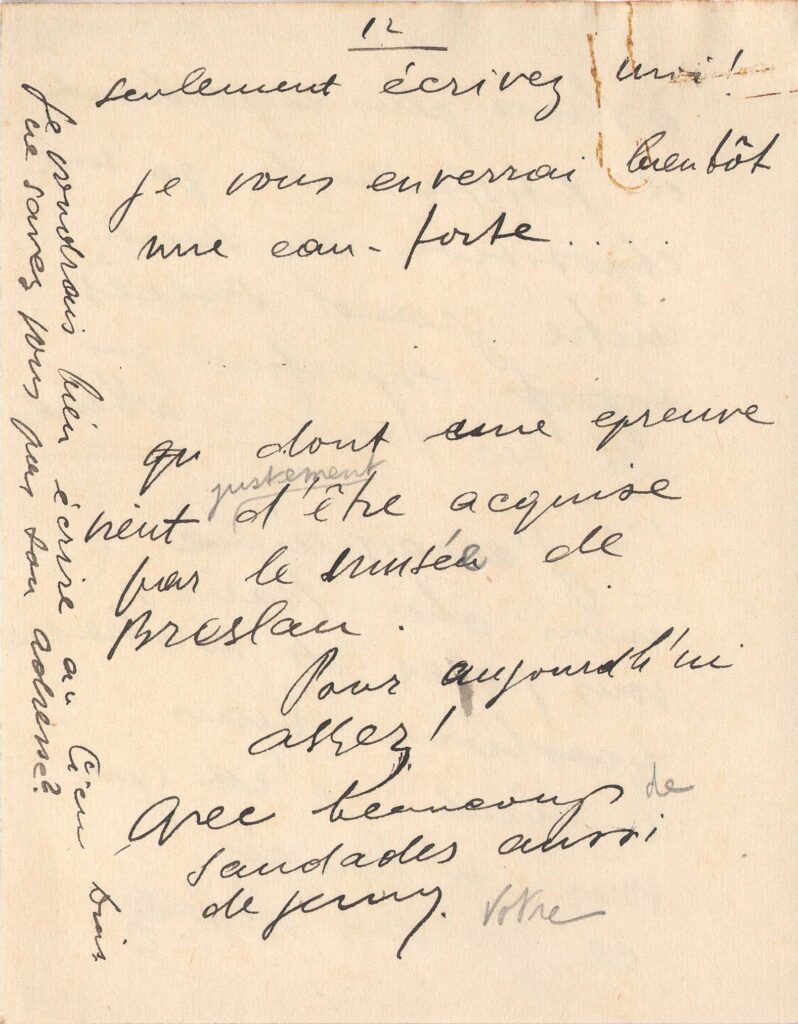 12
seulement écrivez moi!
je vous enverrai bientôt
une eau-forte...
dont une epreuve
vient justement d'être acquise
par le musée de
Breslau.
Pour aujourd'hui
assez!
Avec beaucoup de
saudades aussi
de Jenny. Votre
Je voudrais bien écrire au
ne savez vous pas son adresse?